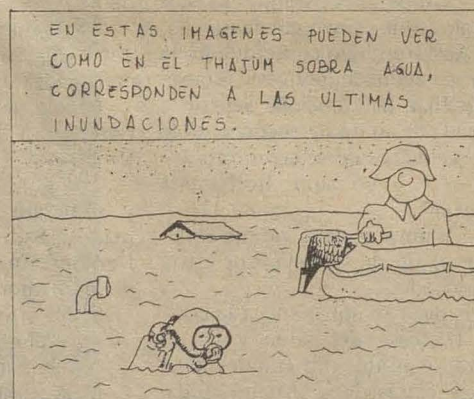 EN ESTAS IMAGENES PUEDEN VER
COMO EN EL THAJUM SOBRA AGUA,
CORRESPONDEN A LAS ULTIMAS
INUNDACIONES.